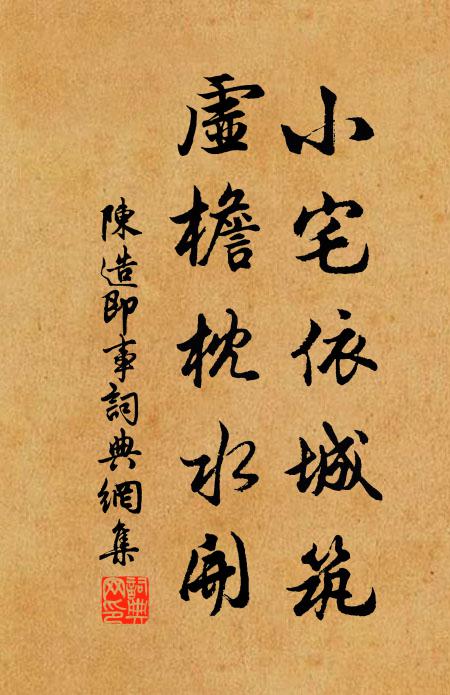 小宅依城筑
虛檐枕水開
陳造即事詞典網集
詞典网印